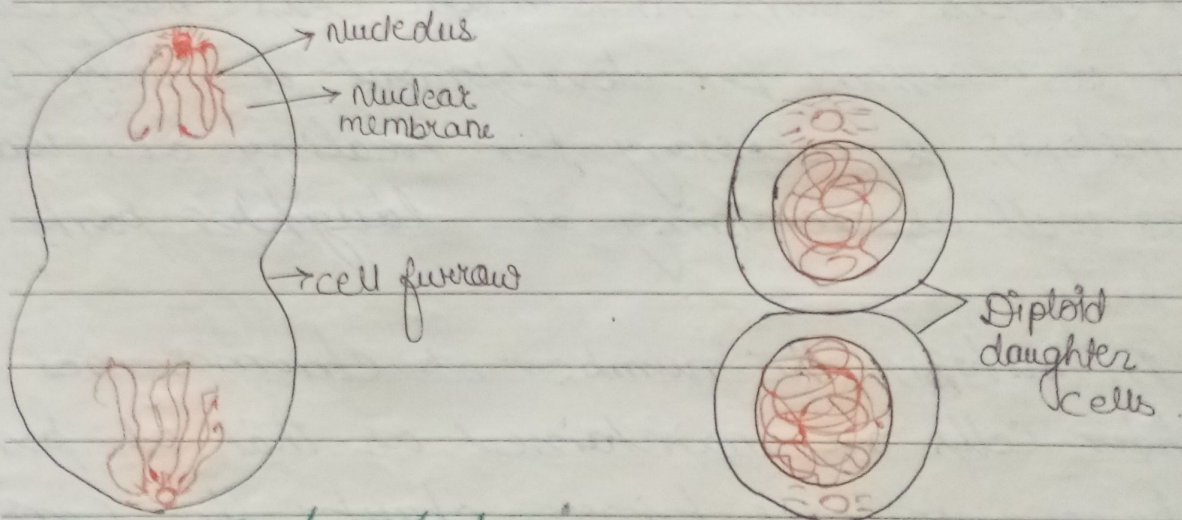 Nucleolus
Nuclear
membrane
cell furrow
Diploid
daughter
cells